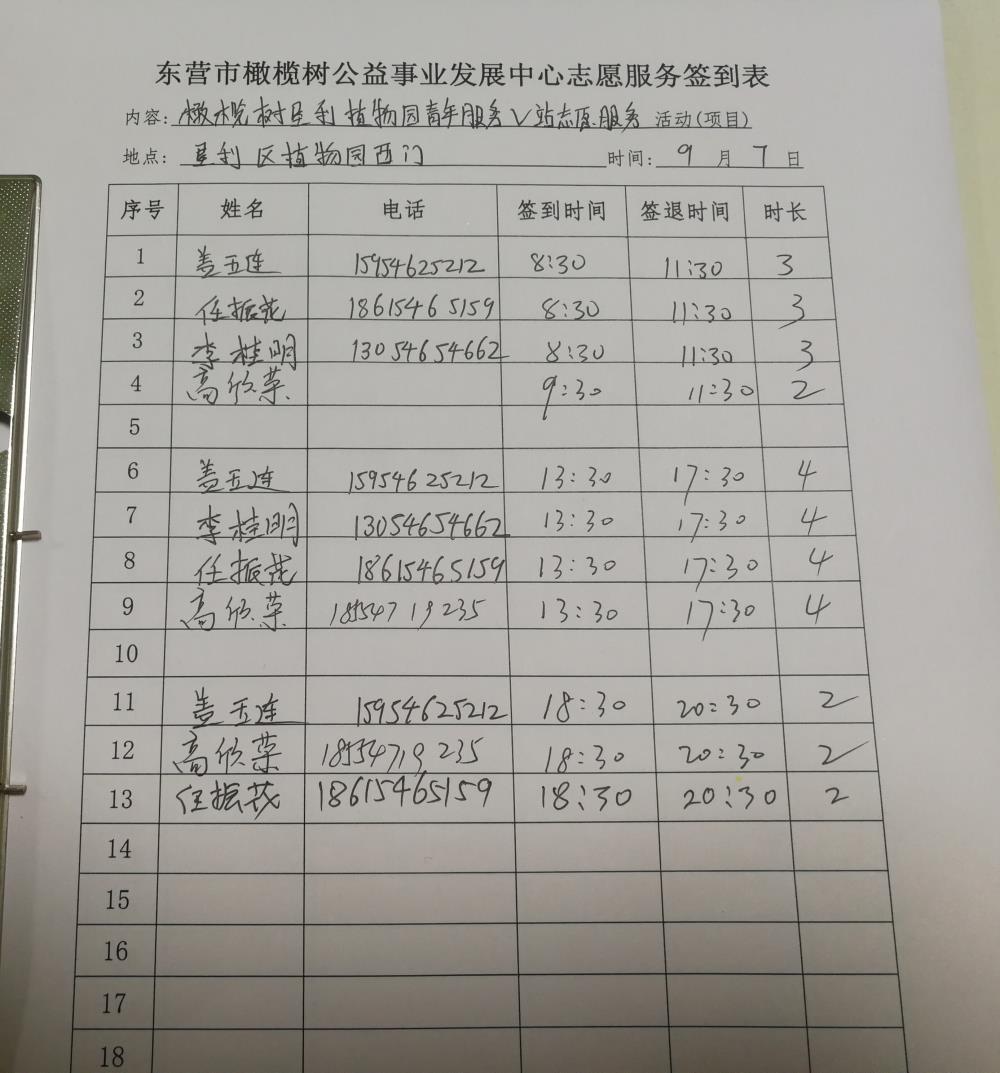 东营市橄榄树公益事业发展中心志愿服务签到表
内容: 橄榄树垦利植物园青年服务V站志愿服务 活动(项目)
地点: 垦利区植物园西门 时间: 9 月 7 日
序号 姓名 电话 签到时间 签退时间 时长
1 盖玉连 15954625212 8:30 11:30 3
2 任振茂 18615465159 8:30 11:30 3
3 李桂明 13054654662 8:30 11:30 3
4 高欣荣 9:30 11:30 2
5
6 盖玉连 15954625212 13:30 17:30 4
7 李桂明 13054654662 13:30 17:30 4
8 任振茂 18615465159 13:30 17:30 4
9 高欣荣 18554719235 13:30 17:30 4
10
11 盖玉连 15954625212 18:30 20:30 2
12 高欣荣 18554719235 18:30 20:30 2
13 任振茂 18615465159 18:30 20:30 2
14
15
16
17
18